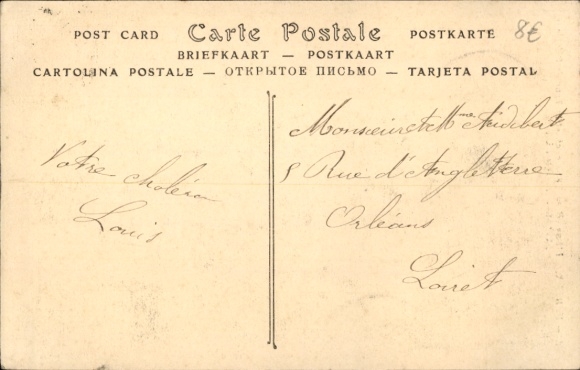 POST CARD Carte Postale POSTKARTE
8€
BRIEFKAART — POSTKAART
CARTOLINA POSTALE — ОТКРЫТОЕ ПИСЬМО — TARJETA POSTAL
Votre
Louis
Monsieur et Mme Audebert
5 Rue d'Angleterre
Orléans
Loiret